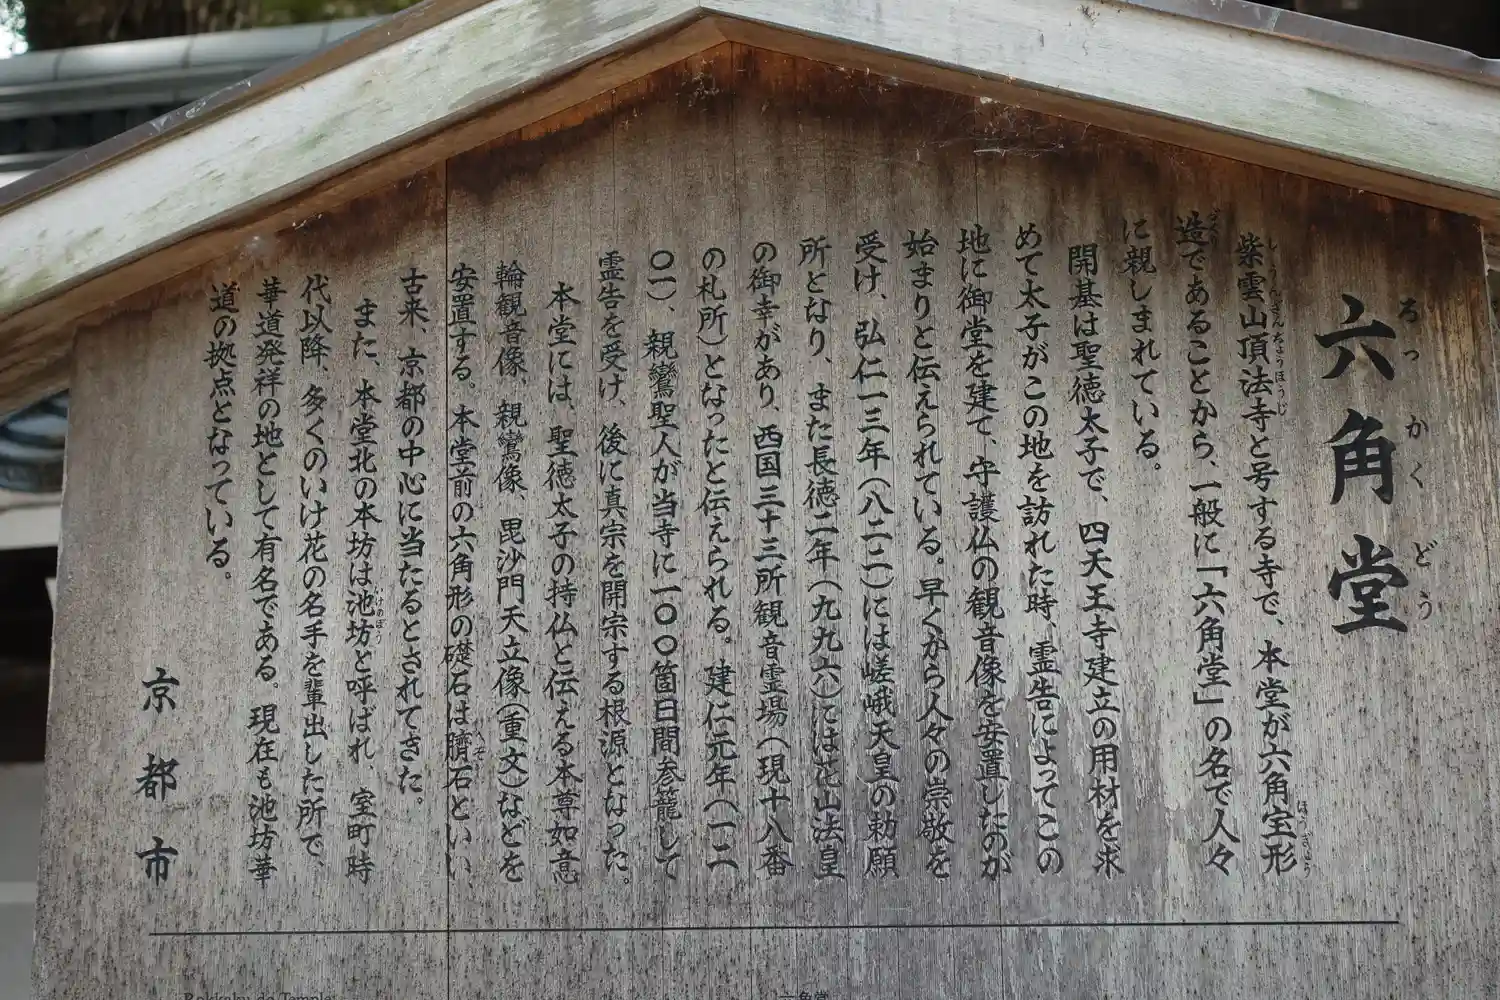 六角堂
ろっかくどう
紫雲山頂法寺と号する寺で、本堂が六角宝形
造であることから、一般に「六角堂」の名で人々
に親しまれている。
開基は聖徳太子で、四天王寺建立の用材を求
めて太子がこの地を訪れた時、霊告によってこの
地に御堂を建て、守護仏の観音像を安置したのが
始まりと伝えられている。早くから人々の崇敬を
受け、弘仁一三年(八二二)には嵯峨天皇の勅願
所となり、また長徳二年(九九六)には花山法皇
の御幸があり、西国三十三所観音霊場(現十八番
の札所)となったと伝えられる。建仁元年(一二
〇一)、親鸞聖人が当寺に一〇〇箇日間参籠して
霊告を受け、後に真宗を開宗する根源となった。
本堂には、聖徳太子の持仏と伝える本尊如意
輪観音像、親鸞像、毘沙門天立像(重文)などを
安置する。本堂前の六角形の礎石は臍石といい、
古来、京都の中心に当たるとされてきた。
また、本堂北の本坊は池坊と呼ばれ、室町時
代以降、多くのいけ花の名手を輩出した所で、
華道発祥の地として有名である。現在も池坊華
道の拠点となっている。
京都市
Rokkaku-do Temple
六角堂